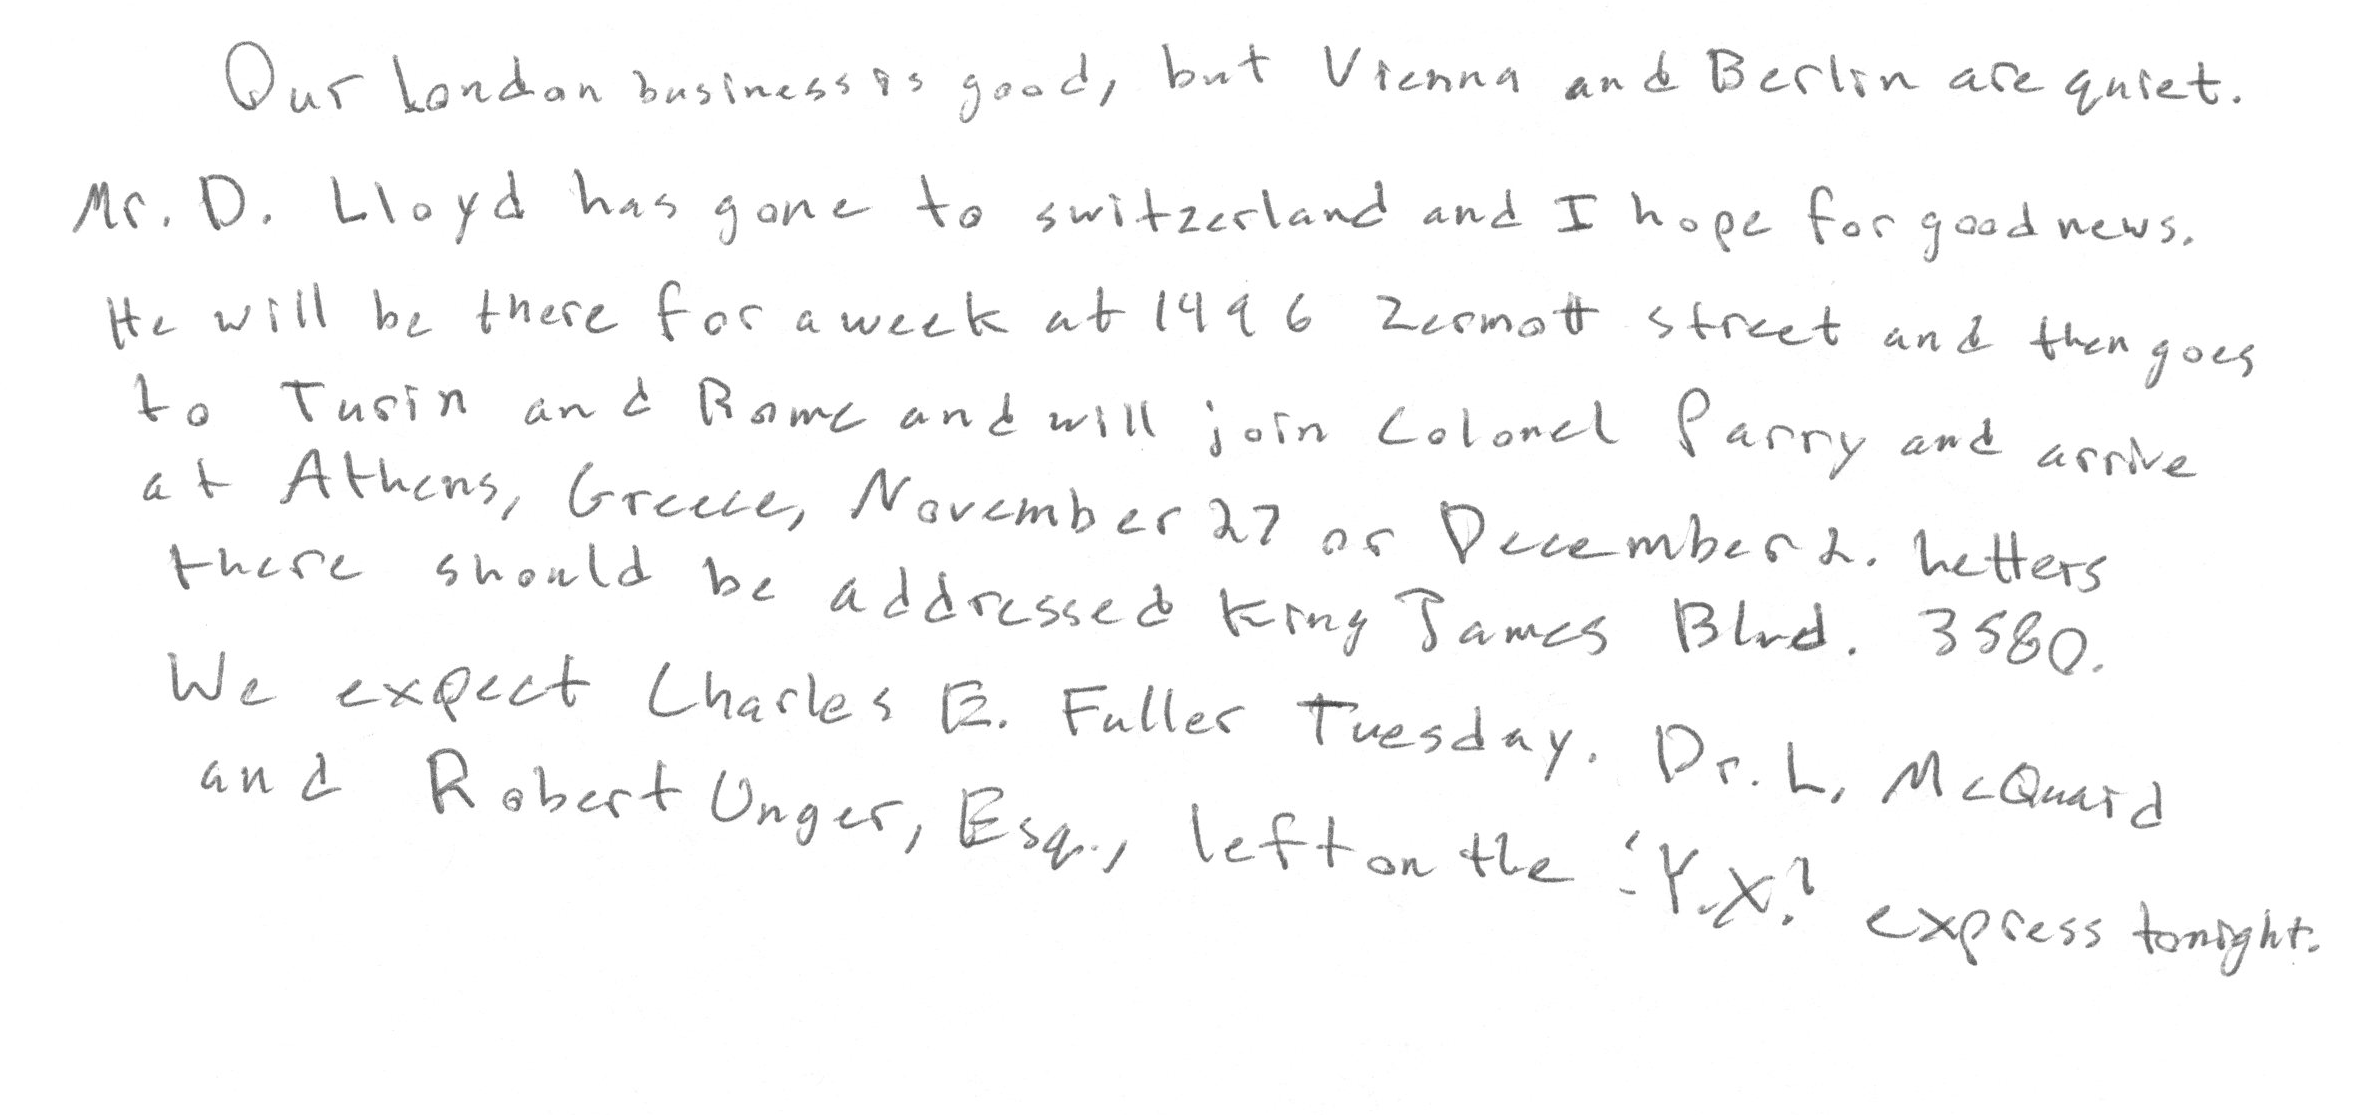 Our London business is good, but Vienna and Berlin are quiet.
Mr. D. Lloyd has gone to switzerland and I hope for good news.
He will be there for a week at 1496 Zermott street and then goes
to Turin and Rome and will join Colonel Parry and arrive
at Athens, Greece, November 27 or December 2. Letters
there should be addressed King James Blvd. 3580.
We expect Charles E. Fuller Tuesday. Dr. L. McQuaid
and Robert Unger, Esq., left on the "Y.X." express tonight.